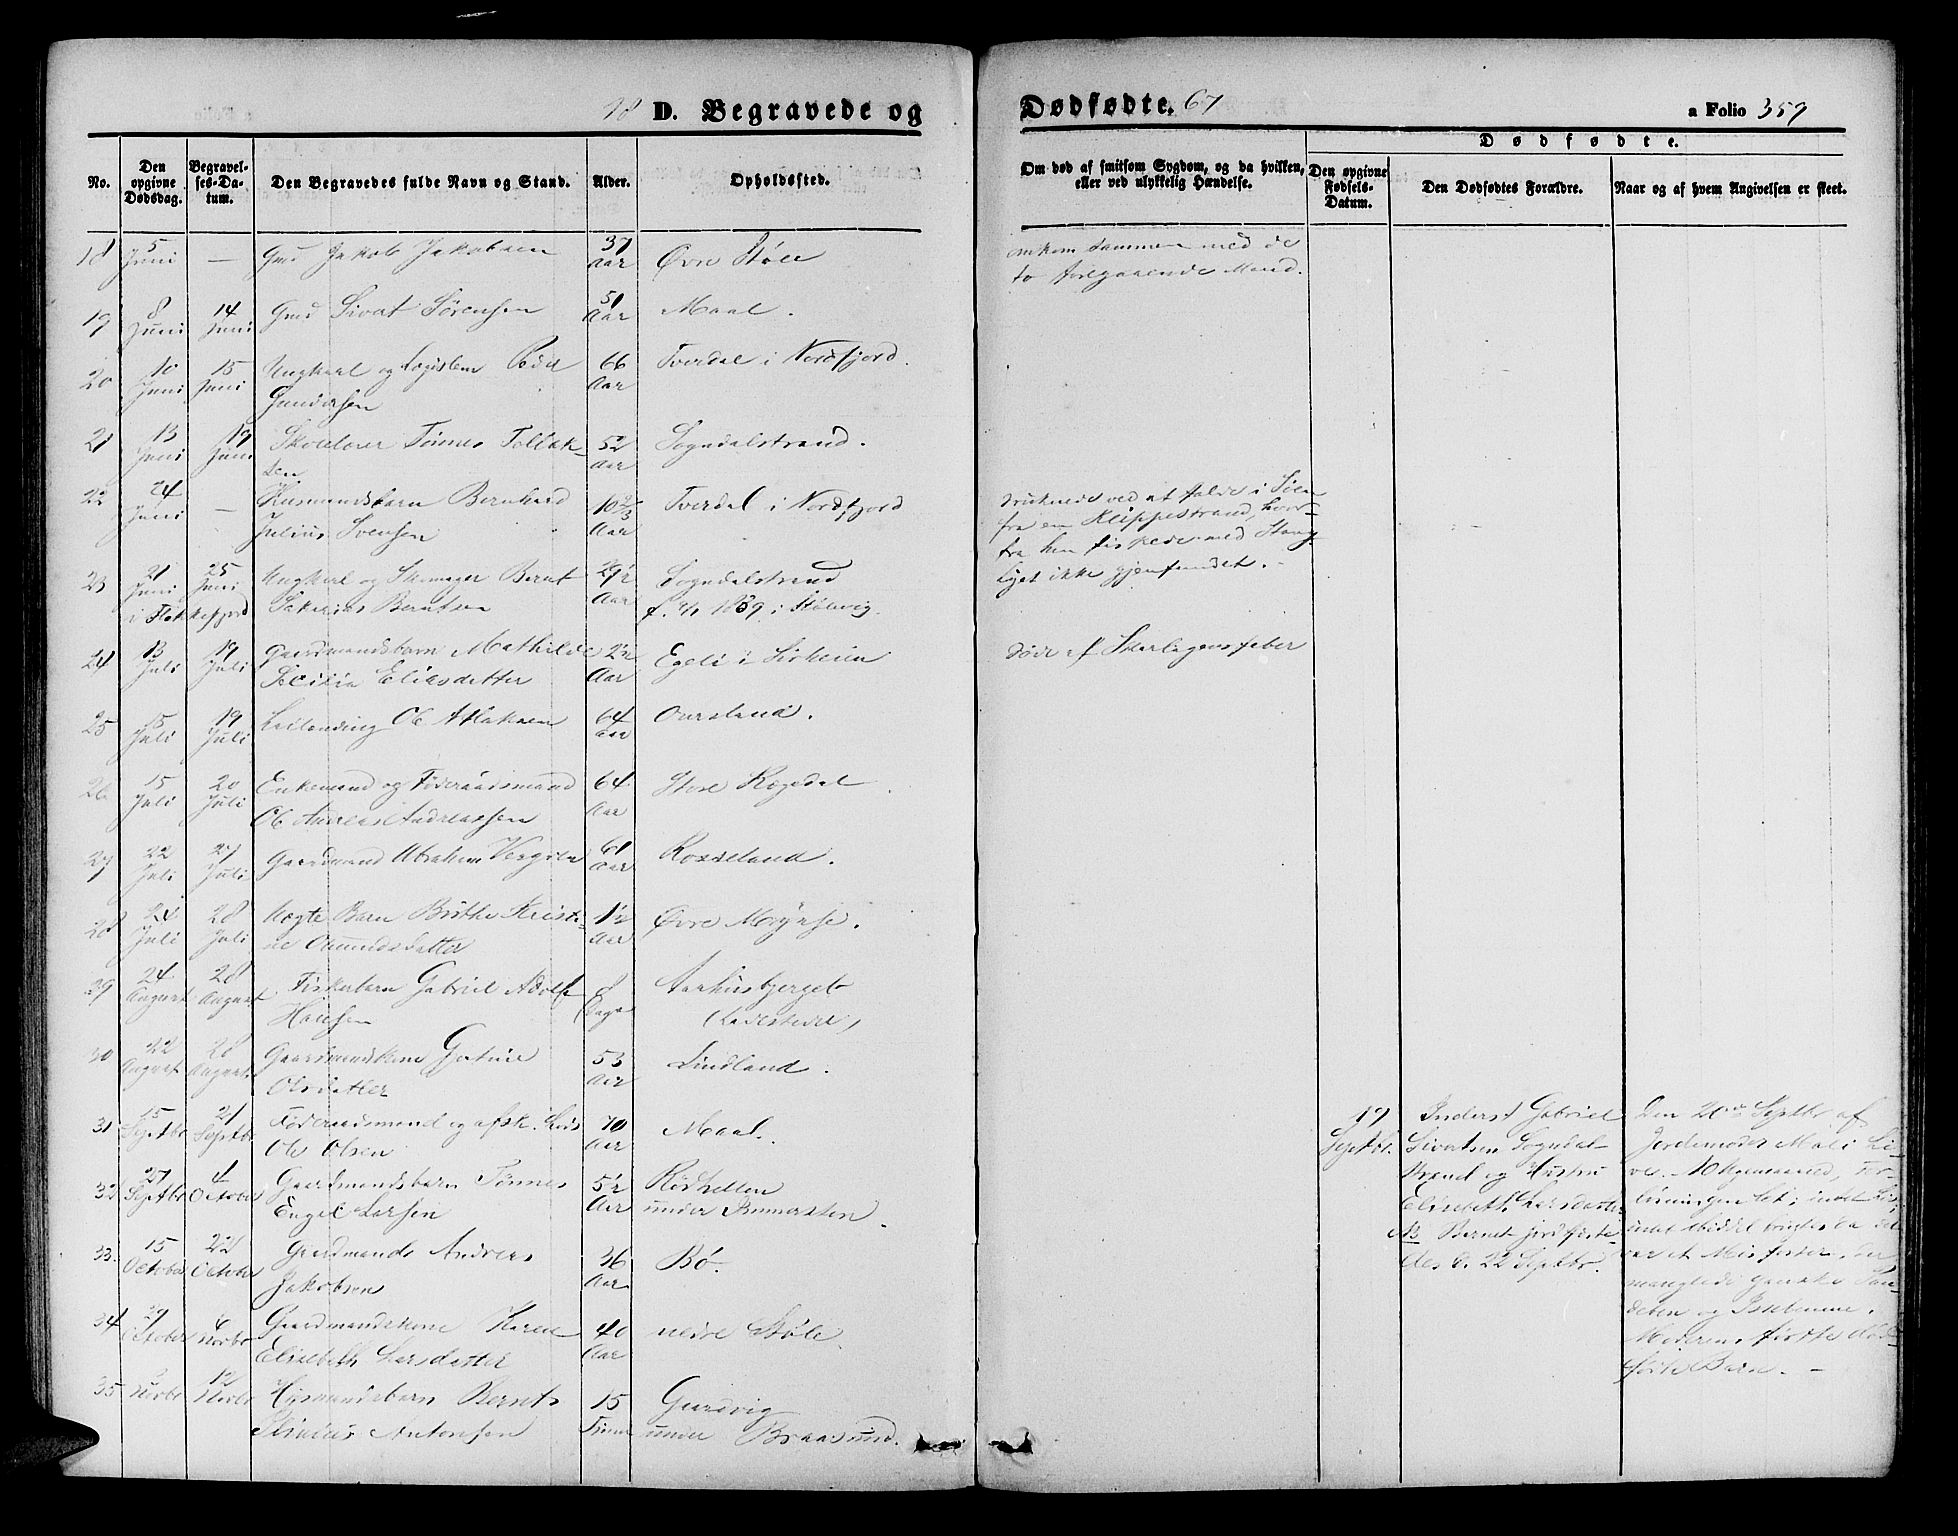 18 D. Begravede og Dødfødte. 67 a Folio 359
No. Den opgivne Dødsdag. Begravelses-Datum. Den Begravedes fulde Navn og Stand. Alder. Opholdssted.
Om død af smitsom Sygdom, og da hvilken, eller ved ulykkelig Hændelse.
Dødfødte.
Den opgivne Fødsels-Datum. Den Dødfødtes Forældre. Naar og af hvem Angivelsen er skeet.
18 5 Juni — Gmd Jakob Jakobsen 37 Aar Øvre Støle
omkom sammen med de
to foregaaende Mænd.
19 8 Juni 14 Juni Gmd Sivert Sørensen 51 Aar Maal.
20 10 Juni 15 Juni Ungkarl og Lægdslem Peder 66 Aar Tverdal i Nordfjord.
Gundersen
21 13 Juni 19 Juni Skolelærer Tønnes Tollak- 52 Aar Sogndalstrand.
sen
22 24 Juni — Husmandsbarn Bernhard 10 2/3 Aar Tverdal i Nordfjord
Julius Svensen
druknede ved at falde i Søen
fra en Klippestrand, hvor-
fra han fiskede med Stang
Liget ikke gjenfundet. -
23 21 Juni 25 Juni Ungkarl og Skomager Bernt 29½ Aar Sogndalstrand
i Flekkefjord Sakarias Berntsen f. 1839 i Stølsvig.
24 13 Juli 19 Juli Gaardmandsbarn Mathilde 2½ Aar Egeli i Sirheim
Secilia Eliasdatter
døde af Skarlagensfeber
25 15 Juli 19 Juli Ole Aslaksen 64 Aar Oarsland.
26 15 Juli 20 Juli Enkemand og Føderaadsmand 64 Aar Store Rægedal.
Ole Andreas Andreassen
27 22 Juli 27 Juli Gaardmand Abraham 61 Aar Rosseland.
28 24 Juli 28 Juli Uægte Barn Birthe Kristi- 1½ Aar Øvre Mysse.
ne Omundsdatter
29 24 August 28 August Fiskerbarn Gabriel Adolf 8 Dage Aarhusbjerget
Hansen (Ladestedet)
30 22 August 28 August Gaardmandskone Gurine 53 Aar Lindland.
Olsdatter
31 15 Septbr 21 Septbr Føderaadsmand og afsk. Lods 70 Aar Maal.
Ole Olsen
32 27 Septbr 4 October Gaardmandsbarn Tønnes 5½ Aar Rødhellen
Engel Larsen under
33. 15 October 22 October Gaardmands Andreas 36 Aar Bø.
Jakobsen
34 29 October 4 Novbr Gaardmandskone Karen 40 Aar nedre Støle
Elisabeth Larsdatter
35 2 Novbr 12 Novbr Husmandsbarn Bernt 15 Timer Gursvig
Antonsen under Braasund.
19 Septbr. Inderst Gabriel
Sivertsen Sogndal-
strand og Hustru
Elisabeth Larsdatter
NB Barnet jordfæste-
des d. 22 Septbr.
Den 20de Septbr af
Jordemoder Mali
Forløsningen let; intet
middel brugtes da det
var et Misfoster, der
manglede ganske Pan-
deben og Issebenene.
Moderens første død-
fødte Barn. —